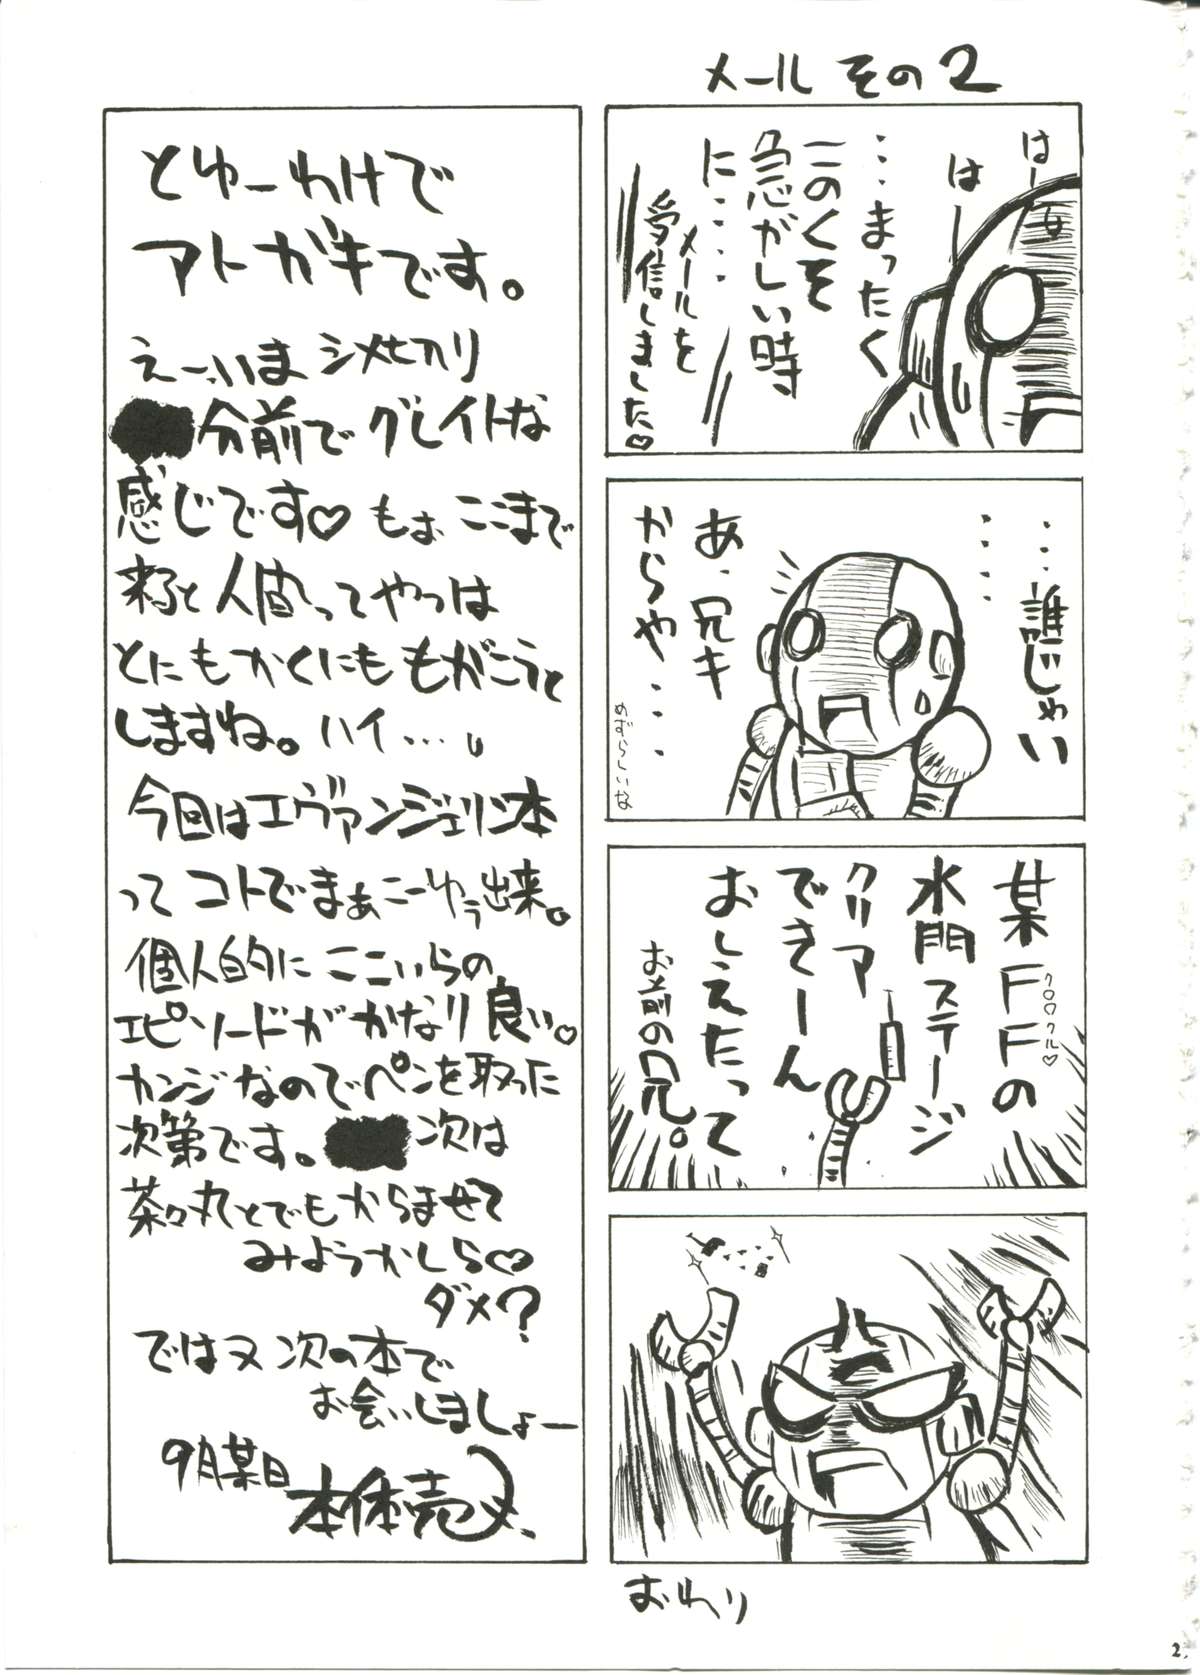 メール その2
はー
はー
…まったく
このくそ
急がしい時
に……
メールを
受信しました♡
…誰じゃい
……
あ、兄キ
からや…
めずらしいな
某FFの
クロクル♡
水門ステージ
クリア
できーん
おしえたって
お前の兄。
おわり
とゆーわけで
アトガキです。
えー、いまシメ切り
分前でグレイトな
感じです♡ もぉ ここまで
来ると人間ってやつは
とにもかくにももがこうと
しますね。ハイ…。
今回はエヴァンジェリン本
ってコトでまぁこーゆぅ出来。
個人的にここいらの
エピソードがかなり良い♡
カンジなのでペンを取った
次第です。 次は
茶々丸とでもからませて
みようかしら♡
ダメ?
ではヌ 次の本で
お会いしましょー
9月某日
本体売
2